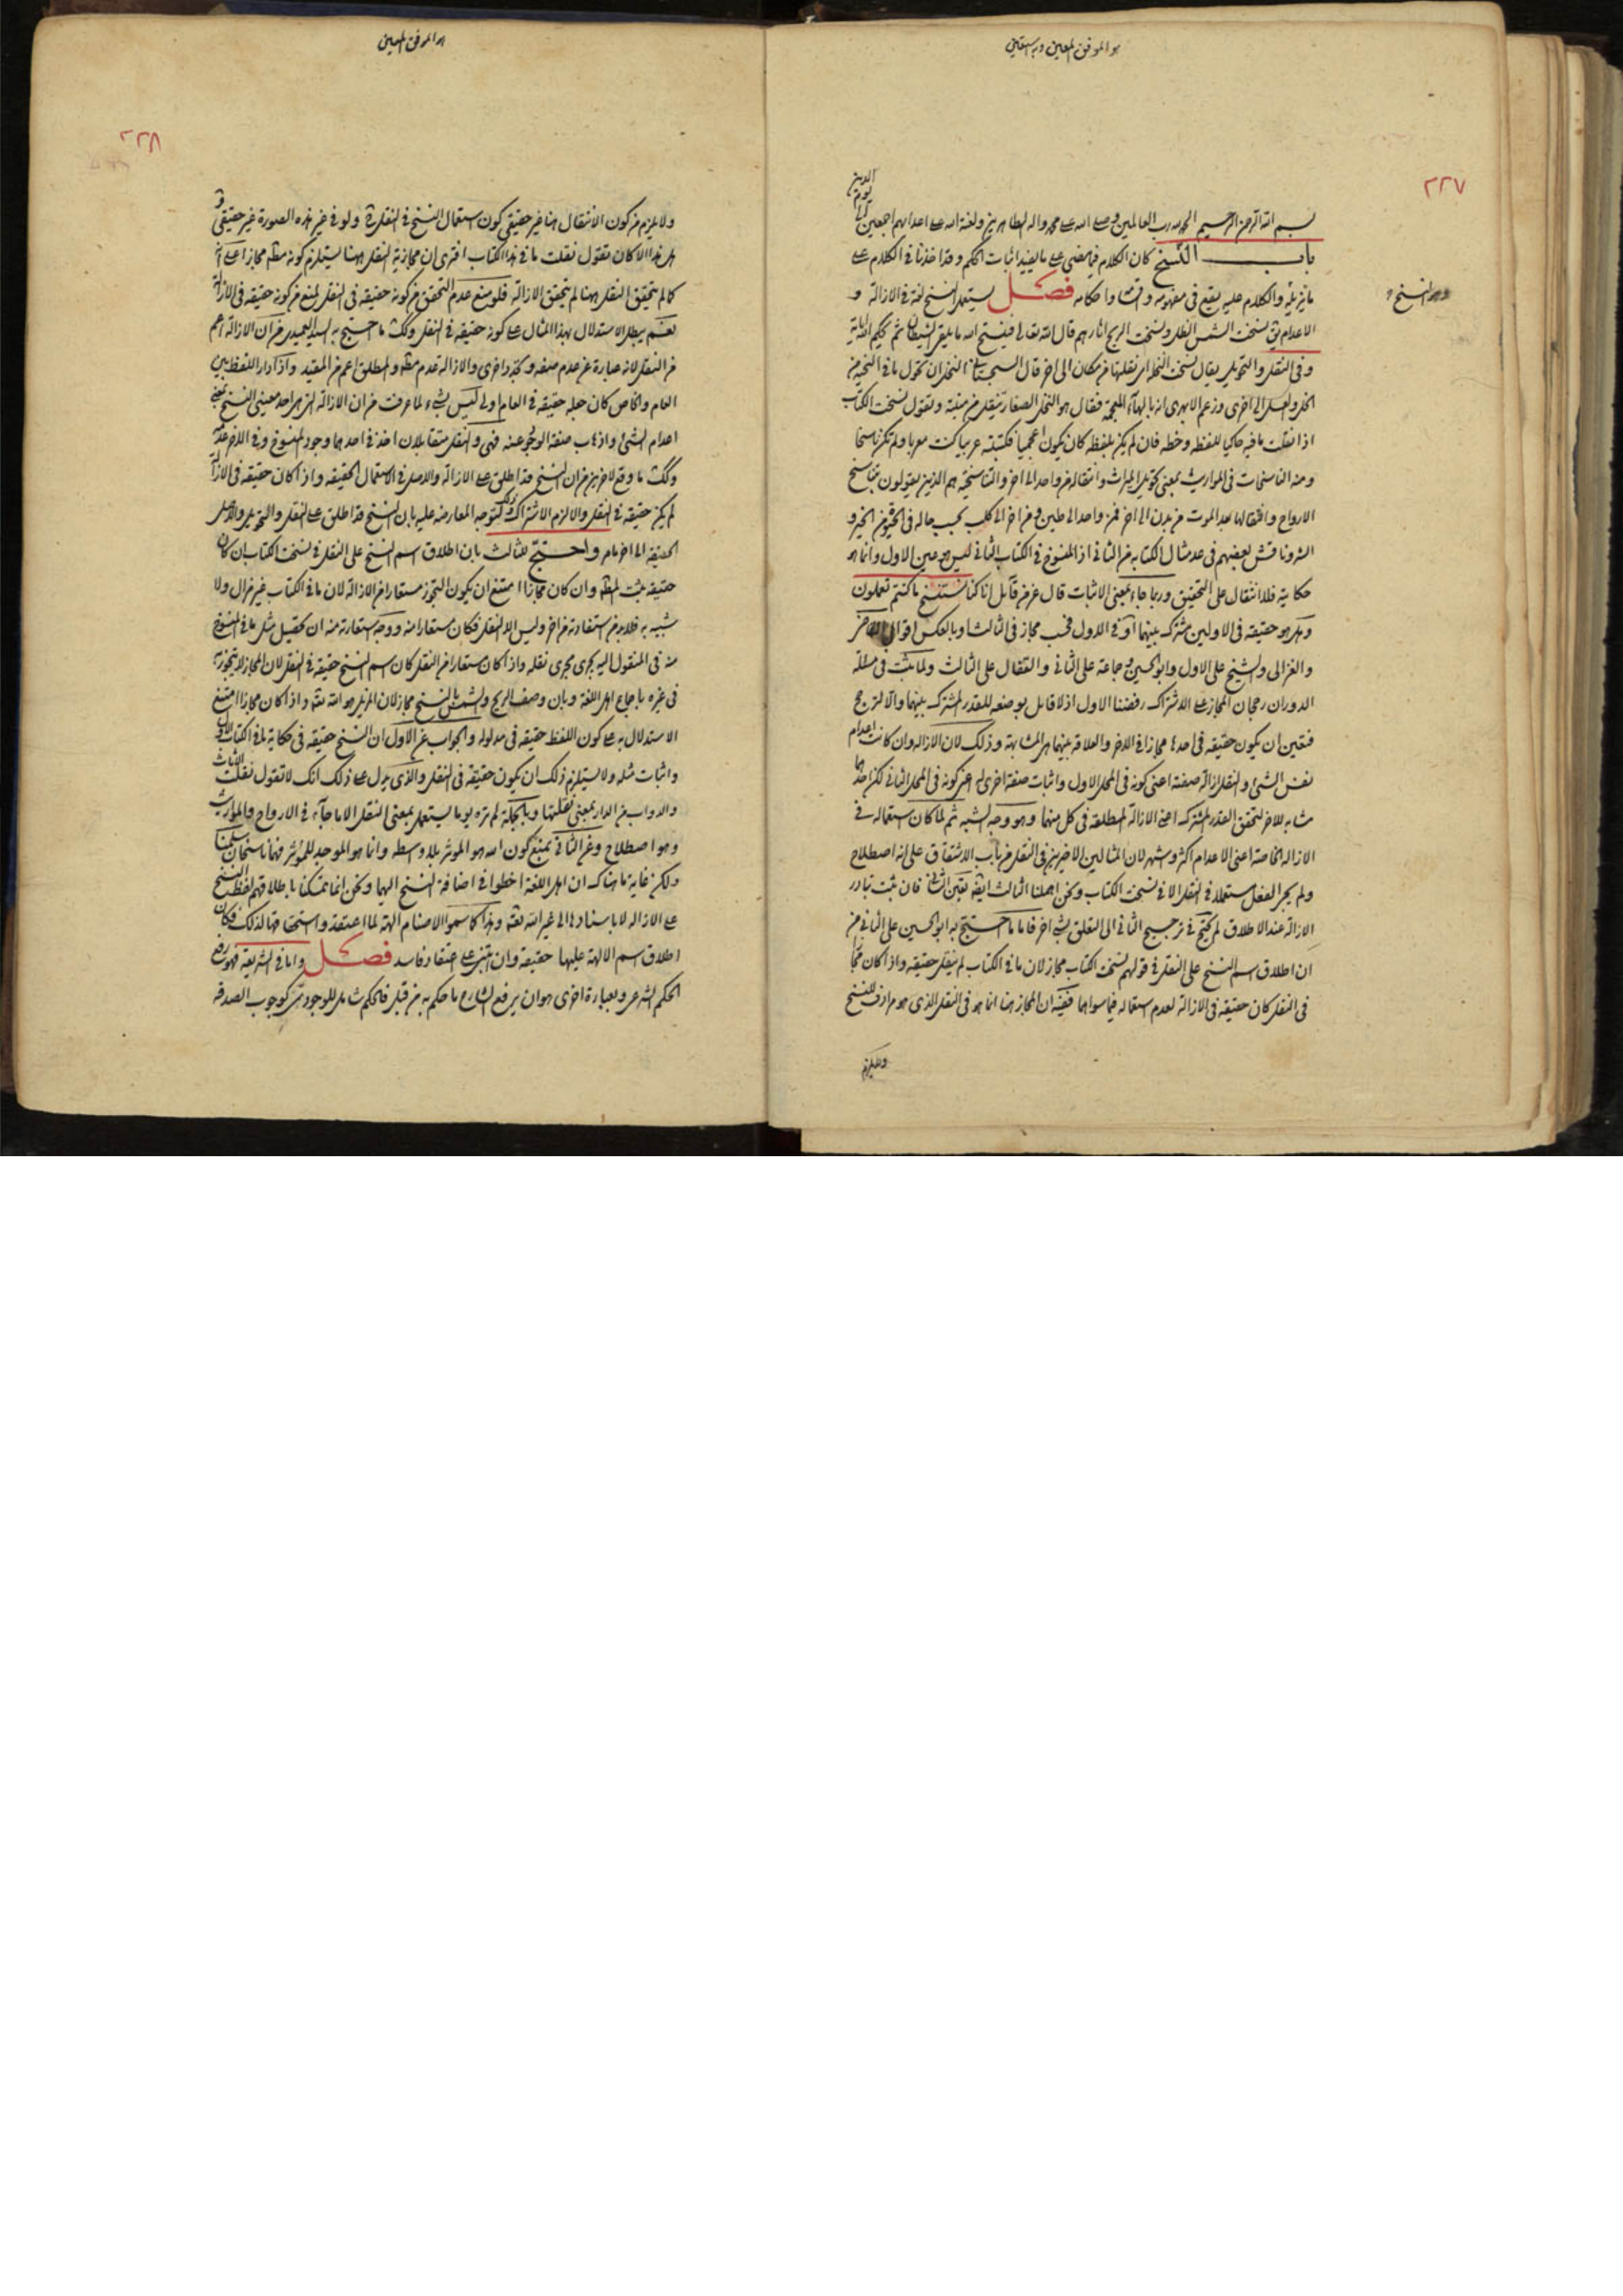 هو الموفق المعين وبه نستعين
٢٢٧
بسم الله الرحمن الرحيم الحمد لله رب العالمين وصلى الله على محمد واله الطاهرين ولعنة الله على اعدائهم اجمعين الى
يوم
الدين
باب النسخ كان الكلام فيما مضى على ما يفيد اثبات الحكم وقد اخذنا في الكلام على
ما يزيله والكلام عليه يقع في مفهومه واحكامه فصل يستعمل النسخ لغة في الازالة و
الاعدام يق نسخت الشمس الظل ونسخت الريح اثارهم قال الله تعالى فينسخ الله ما يلقى الشيطان ثم يحكم الله اياته
وفي النقل والتحويل يقال نسخت النحل اى نقلتها من مكان الى اخر قال السجستاني النسخ ان تحول ما في الخلية من
النحل والعسل الى اخرى وزعم الابهرى انه بالهاء المعجمة فقال هو النخل الصغار تنقل من منبته وتقول نسخت الكتاب
اذا نقلت ما فيه حاكيا للفظه وخطه فان لم يكن بلفظه كان يكون اعجميا فكتبته عربيا كنت معربا ولم تكن ناسخا
ومنه المناسخات في المواريث بمعنى تحويل الميراث وانتقاله من واحد الى اخر والتناسخية هم الذين يقولون بتناسخ
الارواح وانتقالها بعد الموت من بدن الى اخر فمن واحد الى طين ومن اخر الى كلب بحسب حاله في الخير و
الشر وناقش بعضهم في عد مثال الكتابة من الثاني اذ المنسوخ في الكتاب الثاني ليس هو عين الاول وانما هو
حكاية فلا انتقال على التحقيق وربما جاء بمعنى الاثبات قال عز من قائل انا كنا نستنسخ ما كنتم تعملون
وهل هو حقيقة في الاولين مشترك بينهما او في الاول فحسب مجاز في الثالث او بالعكس اقوال
والغزالى والشيخ على الاول وابو الحسين وجماعة على الثاني والقفال على الثالث ولما ثبت في مسئلة
الدوران رجحان المجاز على الاشتراك رفضنا الاول اذ لا قائل بوضعه للقدر المشترك بينهما والا لترجح
فتعين ان يكون حقيقة في احدهما مجازا في الاخر والعلاقة بينهما هى المشابهة وذلك لان الازالة وان كانت اعدام
نفس الشئ والنقل ازالة صفته اعنى كونه في المحل الاول واثبات صفة اخرى له اعنى كونه في المحل الثاني لكن احدهما
مشابه للاخر لتحقق القدر المشترك اعنى الازالة المطلقة في كل منهما وهو وجه الشبه ثم لما كان استعماله في
الازالة الخاصة اعنى الاعدام اكثر واشهر لان المثالين الاخيرين في النقل من باب الاشتقاق على انه اصطلاح
ولم يجر الفعل مستعملا في النقل الا في نسخت الكتاب ونحن اهملنا الثالث ايض تعين الثاني فان ثبت تبادر
الازالة عند الاطلاق لم يحتج في ترجيح الثاني الى التعلق بشئ اخر فاما ما احتج به ابو الحسين على الثاني من
ان اطلاق اسم النسخ على النقل في قولهم نسخت الكتاب مجاز لان ما في الكتاب لم ينقل حقيقة واذا كان مجازا
في النقل كان حقيقة في الازالة لعدم استعماله فيما سواهما ففيه ان المجاز هنا انما هو في النقل الذى هو مرادف للنسخ
ولا يلزم
هو الموفق المعين
٢٢٨
ولا يلزم من كون الانتقال هنا غير حقيقى كون استعمال النسخ في النقل ولو في غير هذه الصورة غير حقيقى و
هل هذا الا كان تقول نقلت ما في هذا الكتاب افترى ان مجازية النقل ههنا يستلزم كونه مطلقا مجازا على انه
كما لم يتحقق النقل ههنا لم يتحقق الازالة فلو منع عدم التحقق من كونه حقيقة في النقل لمنع من كونه حقيقة في الازالة
نعم يبطل الاستدلال بهذا المثال على كونه حقيقة في النقل وكك ما احتج به السيد العميدى من ان الازالة اعم
من النقل لانه عبارة عن عدم صفة وتجدد اخرى والازالة عدم مطلقا والمطلق اعم من المقيد واذا دار اللفظ بين
العام والخاص كان جعله حقيقة في العام اولى ليس بشئ لما عرفت من ان الازالة التى هى احد معنيى النسخ بمعنى
اعدام الشئ واذهاب صفة الوجود عنه فهى والنقل متقابلان اخذ في احدهما وجود المنسوخ وفي الاخر عدمه
وكك ما وقع لاخرين من ان النسخ قد اطلق على الازالة والاصل في الاستعمال الحقيقة واذا كان حقيقة في الازالة
لم يكن حقيقة في النقل والا لزم الاشتراك وذلك لتوجه المعارضة عليه بان النسخ قد اطلق على النقل والتحويل والاصل
الحقيقة الى اخر ما مر واحتج للثالث بان اطلاق اسم النسخ على النقل في نسخت الكتاب ان كان
حقيقة ثبت المط وان كان مجازا امتنع ان يكون التجوز مستعارا من الازالة لان ما في الكتاب غير مزال ولا
شبيه به فلابد من استفادته من اخر وليس الا النقل فكان مستعارا منه ووجه استعارته منه ان تحصيل مثل ما في المنسوخ
منه في المنقول اليه يجرى مجرى نقله واذا كان مستعارا من النقل كان اسم النسخ حقيقة في النقل لان المجاز لا يتجوز به
في غيره باجماع اهل اللغة وبان وصف الريح والشمس بالنسخ مجاز لان المزيل هو الله تعالى واذا كان مجازا امتنع
الاستدلال به على كون اللفظ حقيقة في مدلوله والجواب عن الاول ان النسخ حقيقة في حكاية ما في الكتاب
واثبات مثله ولا يستلزم ذلك ان يكون حقيقة في النقل والذى يدل على ذلك انك لا تقول نقلت
والدواب من الدار بمعنى نقلتها وبالجملة لم نره يوما يستعمل بمعنى النقل الا ما جاء في الارواح والمواريث
وهو اصطلاح وعن الثاني بمنع كون الله هو المؤثر بلا وسطه وانما هو الموجد للمؤثر فهما ناسخان سلمنا
ولكن غاية ما هناك ان اهل اللغة اخطوا في اضافة النسخ اليهما ونحن انما تمسكنا باطلاقهم لفظ النسخ
على الازالة لا باسنادها الى غير الله تعالى وهذا كما سموا الاصنام الهة لما اعتقدوا استحقاقها لذلك فكان
اطلاق اسم الالهة عليها حقيقة وان ابتنى على اعتقاد فاسد فصل واما في الشريعة فهو رفع
الحكم الشرعى وبعبارة اخرى هو ان يرفع الشارع ما حكم به من قبل فالحكم شامل للوجودى كوجوب الصدقة